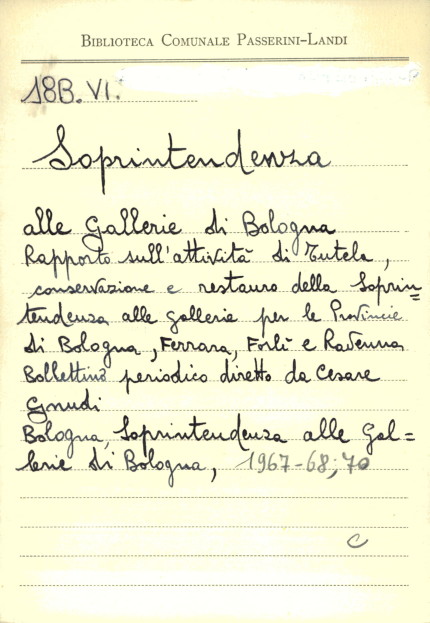 BIBLIOTECA COMUNALE PASSERINI-LANDI
18B.VI.
Soprintendenza
alle Gallerie di Bologna
Rapporto sull'attività di Tutela,
conservazione e restauro della Soprin=
tendenza alle gallerie per le Provincie
di Bologna, Ferrara, Forlì e Ravenna
Bollettino periodico diretto da Cesare
Gnudi
Bologna, Soprintendenza alle Gal=
lerie di Bologna, 1967-68; 70
C